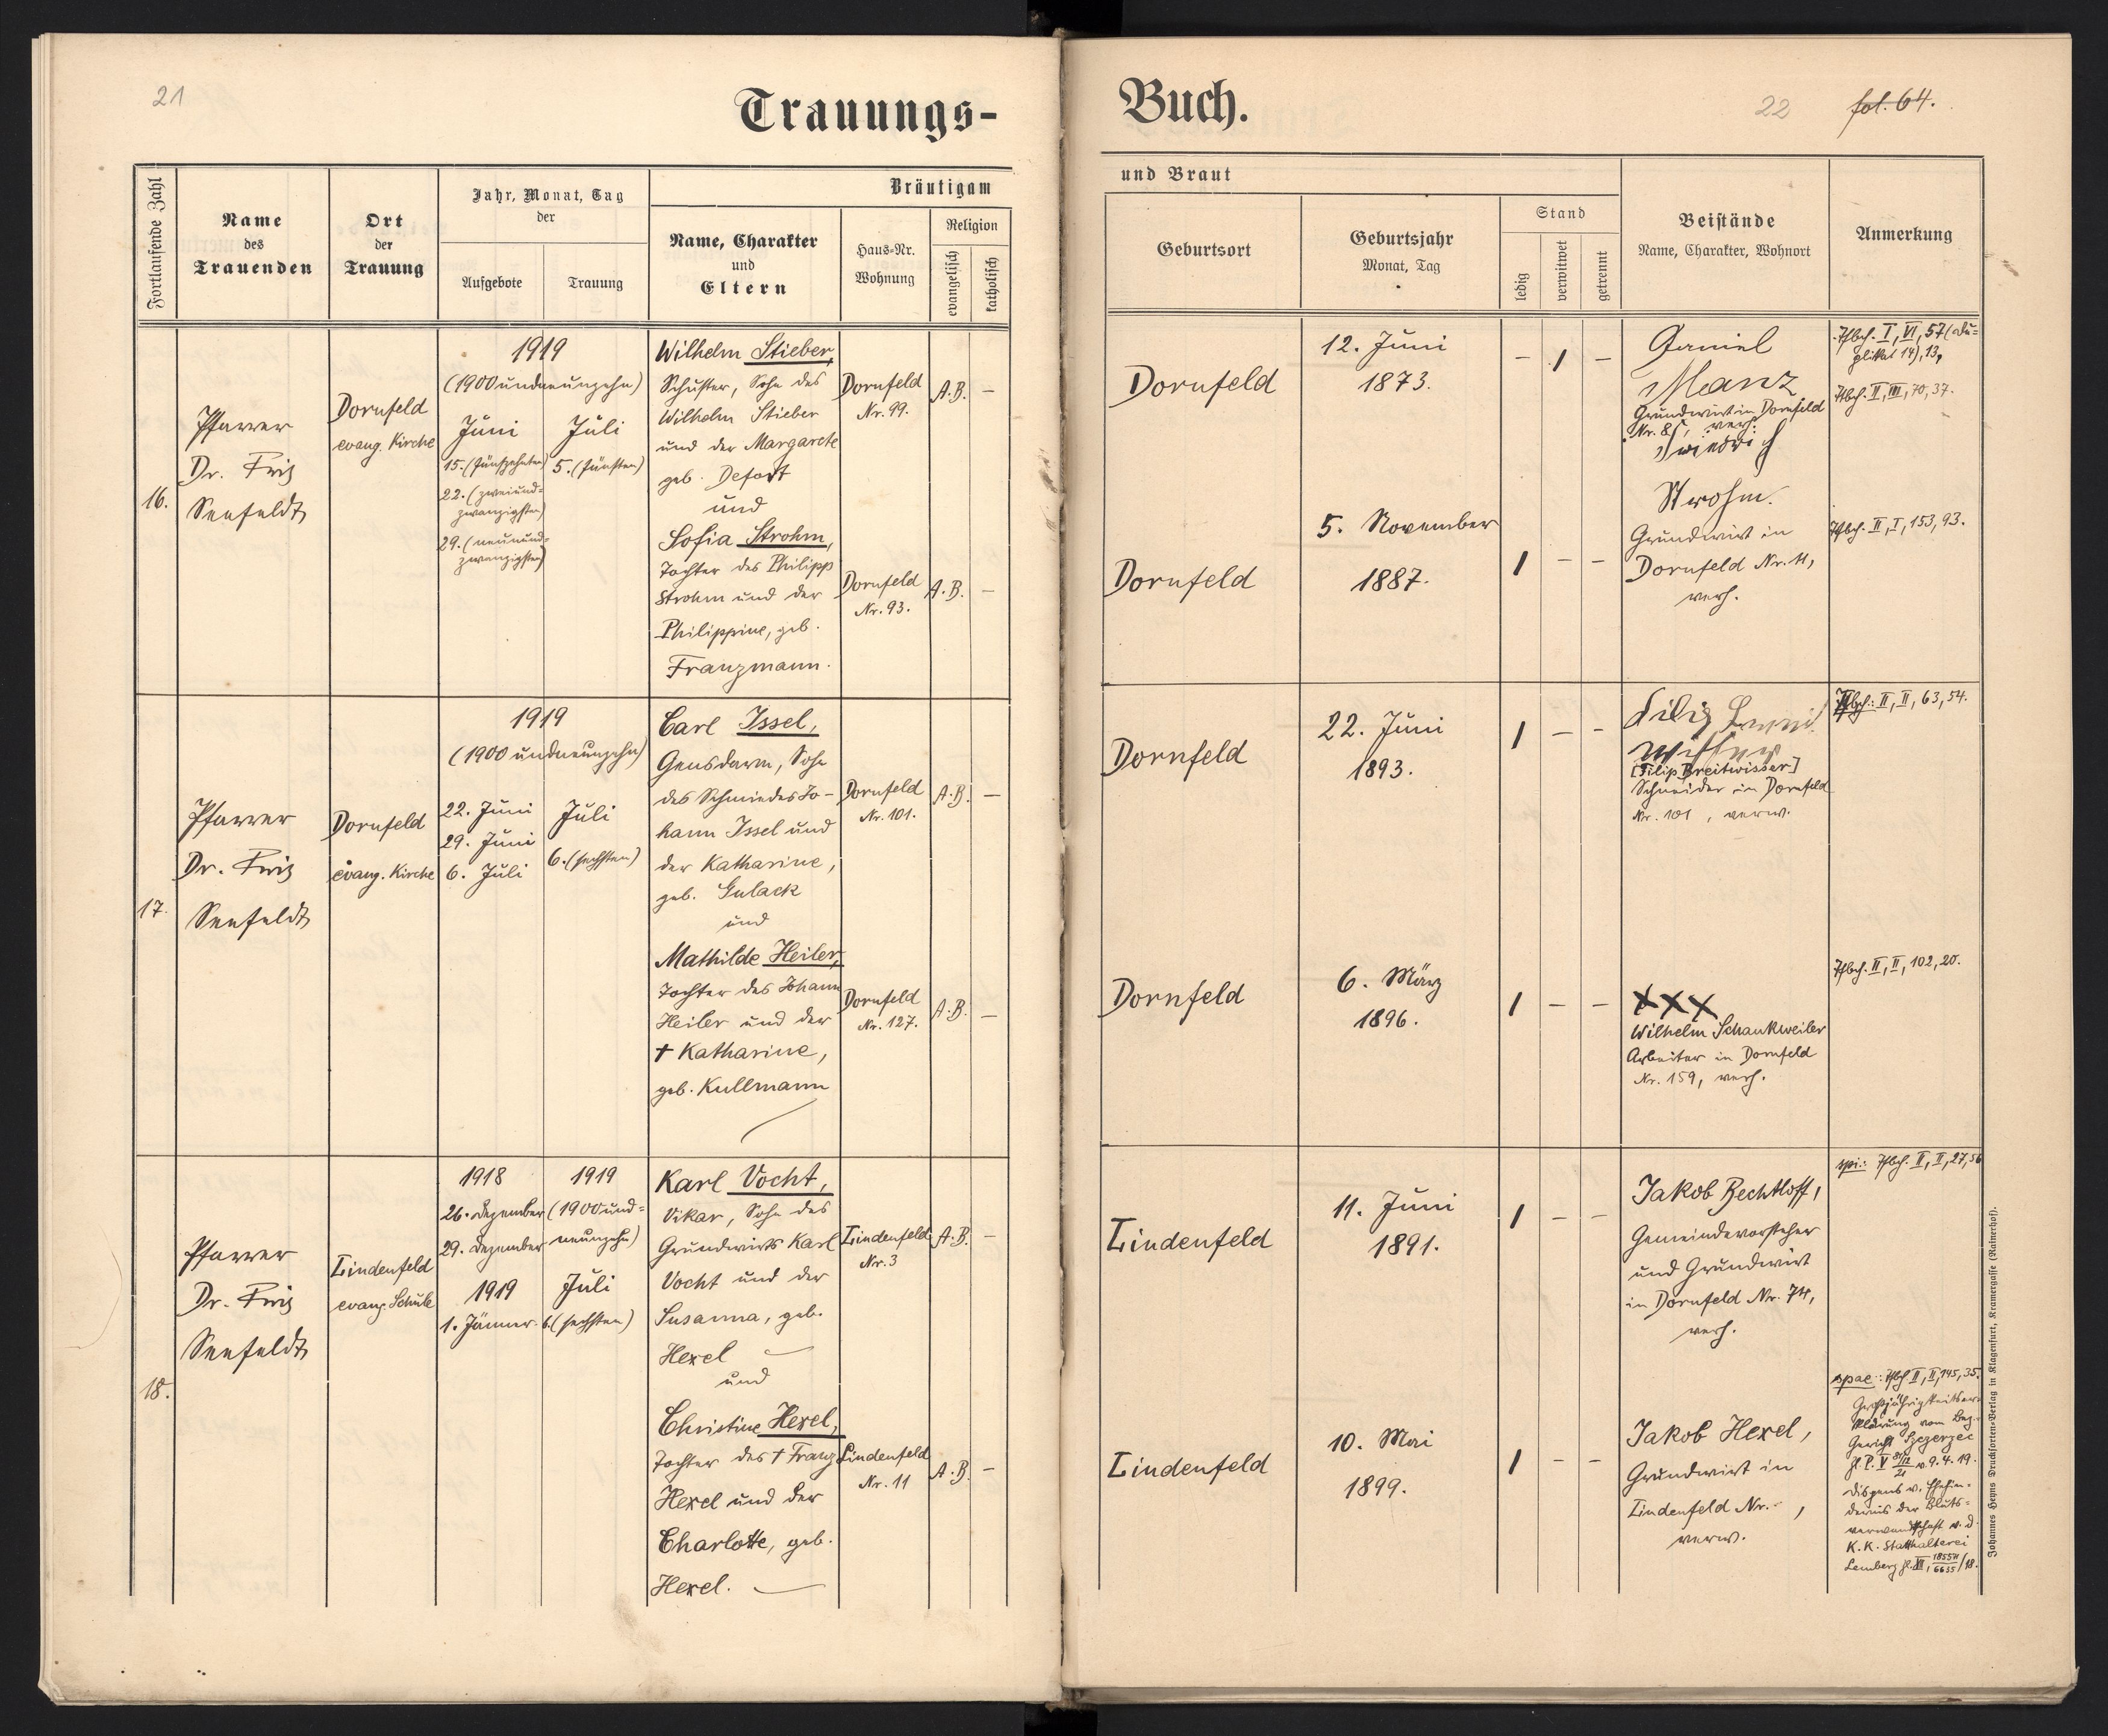 21
Trauungs-
Fortlaufende Zahl
Name
des
Trauenden
Ort
der
Trauung
Jahr, Monat, Tag
der
Aufgebote
Trauung
Bräutigam
Name, Charakter
und
Eltern
Haus-Nr.
Wohnung
Religion
evangelisch
katholisch
16.
Pfarrer
Dr. Fritz
Seefeldt
Dornfeld
evang. Kirche
1919
(1900 und neunzehn)
Juni
15. (fünfzehnten)
22. (zweiund-
zwanzigsten)
29. (neunund-
zwanzigsten)
Juli
5. (fünften)
Wilhelm Stieber,
Schuster, Sohn des
Wilhelm Stieber
und der Margarete
geb. Defort
und
Sofia Strohm,
Tochter des Philipp
Strohm und der
Philippine, geb.
Franzmann.
Dornfeld
Nr. 99.
A.B. –
Dornfeld
Nr. 93.
A.B. –
17.
Pfarrer
Dr. Fritz
Seefeldt
Dornfeld
evang. Kirche
1919
(1900 und neunzehn)
22. Juni
29. Juni
6. Juli
Juli
6. (sechsten)
Carl Issel,
Gensdarm, Sohn
des Schmiedes Jo-
hann Issel und
der Katharine,
geb. Gulack
und
Mathilde Heiler,
Tochter des Johann
Heiler und der
† Katharine,
geb. Kullmann
Dornfeld
Nr. 101.
A.B. –
Dornfeld
Nr. 127.
A.B. –
18.
Pfarrer
Dr. Fritz
Seefeldt
Lindenfeld
evang. Schule
1918
26. Dezember
29. Dezember
1919
1. Jänner
1919
(1900 und-
neunzehn)
Juli
6. (sechsten)
Karl Vocht,
Vikar, Sohn des
Grundwirts Karl
Vocht und der
Susanna, geb.
Hexel
und
Christine Hexel,
Tochter des † Franz
Hexel und der
Charlotte, geb.
Hexel.
Lindenfeld
Nr. 3
A.B. –
Lindenfeld
Nr. 11
A.B. –
Buch.
22 fol. 64.
und Braut
Geburtsort
Geburtsjahr
Monat, Tag
Stand
ledig
verwitwet
getrennt
Beistände
Name, Charakter, Wohnort
Anmerkung
Dornfeld
12. Juni
1873.
– 1 –
Daniel
Manz
Grundwirt in Dornfeld
Nr. 85, verh.
Strohm.
Grundwirt in
Dornfeld Nr. 11,
verh.
Ffbch. I, VI, 57 (Du-
plikat 14), 13,
Ffbch. II, III, 70, 37.
Dornfeld
5. November
1887.
1 – –
Ffbch. II, I, 153, 93.
Dornfeld
22. Juni
1893.
1 – –
[Filip Breitwisser]
Schneider in Dornfeld
Nr. 101, verw.
Ffbch.: II, II, 63, 54.
Dornfeld
6. März
1896.
1 – –
XXX
Wilhelm Schankweiler
Arbeiter in Dornfeld
Nr. 159, verh.
Ffbch. II, II, 102, 20.
Lindenfeld
11. Juni
1891.
1 – –
Jakob Bechtloff,
Gemeindevorsteher
und Grundwirt
in Dornfeld Nr. 74,
verh.
spi.: Ffbch. II, II, 27, 56
Lindenfeld
10. Mai
1899.
1 – –
Jakob Hexel,
Grundwirt in
Lindenfeld Nr. – ,
verw.
spae: Ffbch II, II, 145, 35.
Großjährigkeitser-
klärung vom Bez.-
Gericht Szczerzec
v. 9.4.19.
Dispens v. Ehehin-
dernis der Bluts-
verwandtschaft v. d.
K.K. Statthalterei
Lemberg
Johannes Heyns Drucksorten-Verlag in Klagenfurt, Kramergasse (Rainerhof).